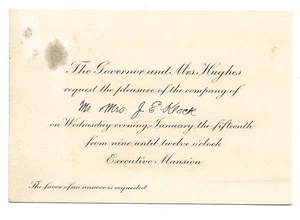 The Governor and Mrs. Hughes
request the pleasure of the company of
Mr. Mrs. J. E. Klock
on Wednesday evening, January the fifteenth
from nine until twelve o'clock
Executive Mansion
The favor of an answer is requested